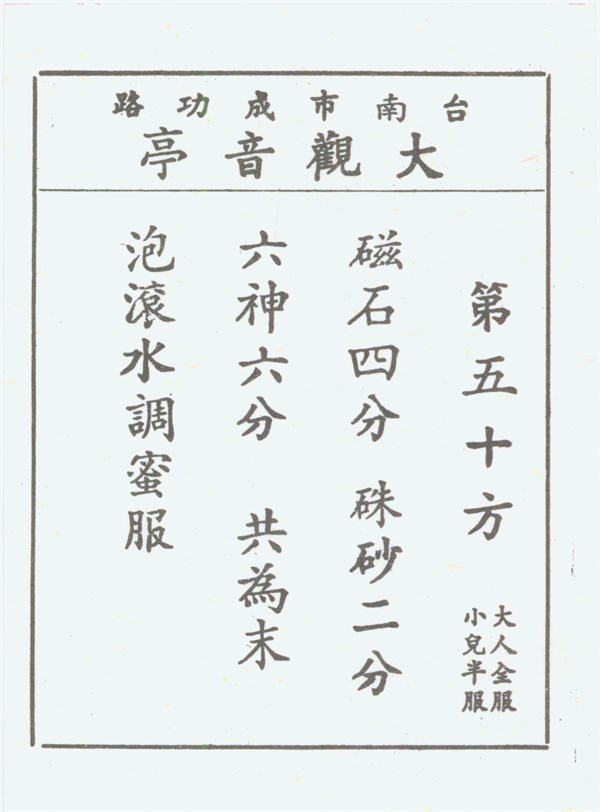 台南市成功路
大觀音亭
第五十方
大人全服
小兒半服
磁石四分 硃砂二分
六神六分 共為末
泡滾水調蜜服